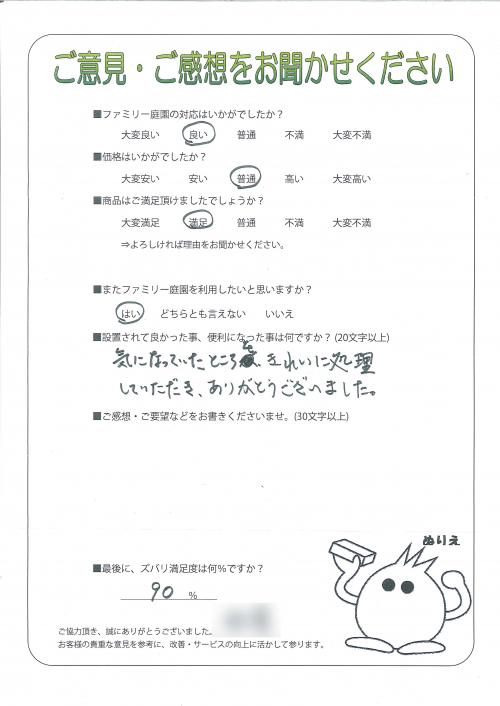 ご意見・ご感想をお聞かせください
■ファミリー庭園の対応はいかがでしたか？
大変良い 良い 普通 不満 大変不満
■価格はいかがでしたか？
大変安い 安い 普通 高い 大変高い
■商品はご満足頂けましたでしょうか？
大変満足 満足 普通 不満 大変不満
⇒よろしければ理由をお聞かせください。
■またファミリー庭園を利用したいと思いますか？
はい どちらとも言えない いいえ
■設置されて良かった事、便利になった事は何ですか？(20文字以上)
気になっていたところを、きれいに処理
していただき、ありがとうございました。
■ご感想・ご要望などをお書きくださいませ。(30文字以上)
ぬりえ
■最後に、ズバリ満足度は何％ですか？
90 %
ご協力頂き、誠にありがとうございました。
お客様の貴重な意見を参考に、改善・サービスの向上に活かして参ります。